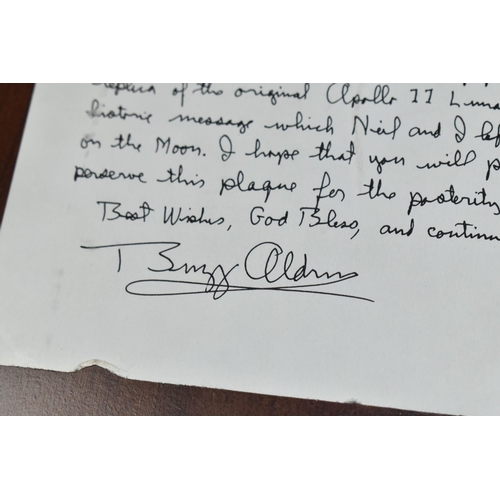 replica of the original Apollo 11 Luna
historic message which Neil and I lef
on the Moon. I hope that you will p
perserve this plaque for the posterity
Best Wishes, God Bless, and continu
Buzz Aldrin